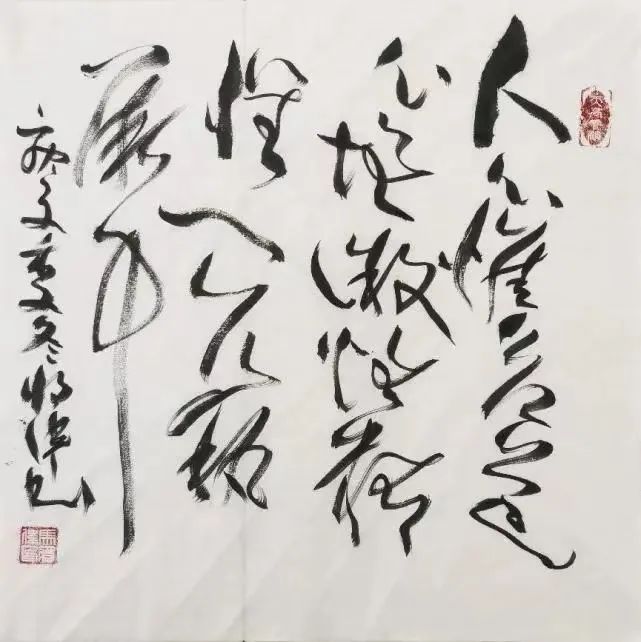 人心惟危道
心惟微惟精
惟一允執
厥中
冬